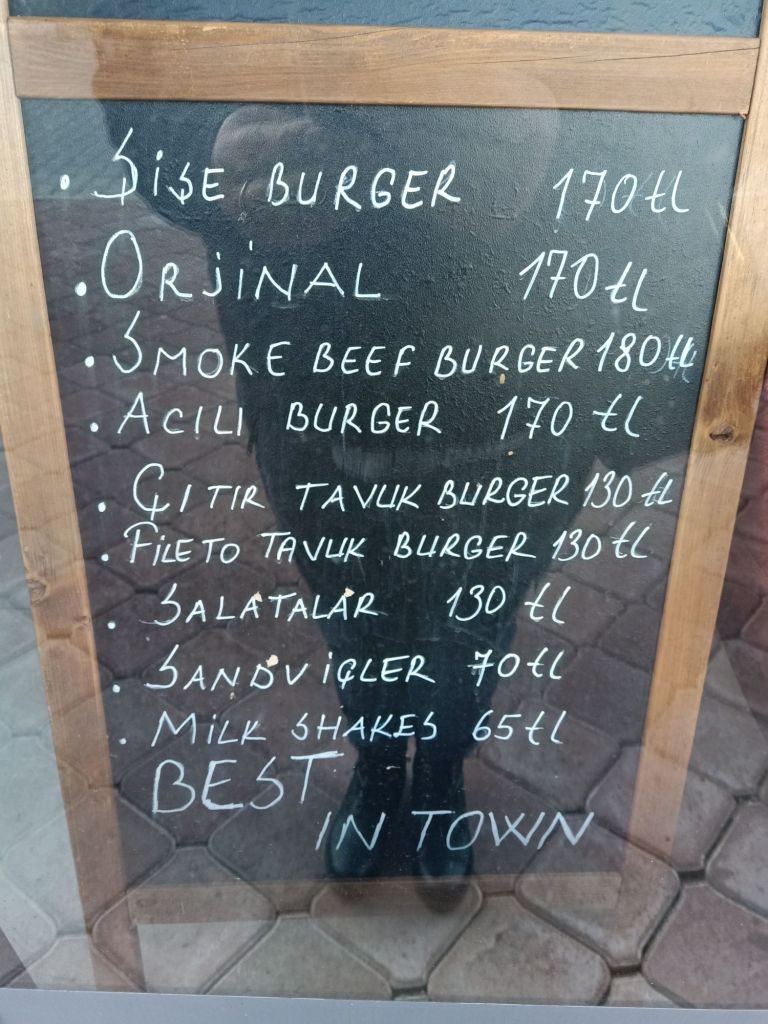 . ŞiŞE BURGER 170 tl
. ORJiNAL 170 tl
. SMOKE BEEF BURGER 180 tl
. ACILI BURGER 170 tl
. ÇITIR TAVUK BURGER 130 tl
. FiLETO TAVUK BURGER 130 tl
. SALATALAR 130 tl
. SANDViÇLER 70 tl
. MiLK SHAKES 65 tl
BEST
IN TOWN